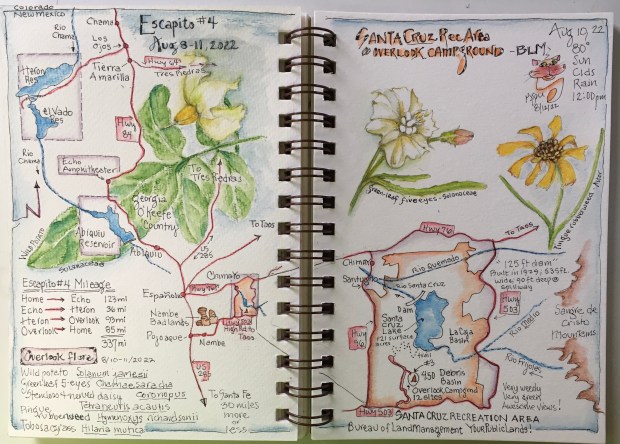 Colorado
New Mexico
Rio
Chama
Chama
Los
Ojos
Escapito #4
Aug 8-11, 2022
Hwy 64
Tres Piedras
Tierra
Amarilla
Heron
Res
El Vado
Res
Hwy
84
Rio
Chama
Echo
Amphitheater
To
Tres Piedras
Georgia
O'Keefe
Country
To Taos
US
285
Wild Potato
Solanaceae
Abiquiu
Reservoir
Abiquiu
Escapito #4 Mileage
Home → Echo 123 mi
Echo → Heron 36 mi
Heron → Overlook 93 mi
Overlook → Home 85 mi
337 mi
Española
Chimayo
Hwy 76
Nambe
Badlands
High Rd to
Taos
Pojoaque
Nambe
US
285
To Santa Fe
30 miles
more
or
less
Overlook Flora 8/10-11/2022
Wild potato Solanum jamesii
Greenleaf 5-eyes Chamaesaracha
coronopus
Stemless 4-nerved daisy
Tetraneuris acaulis
Pingue
rubberweed Hymenoxys richardsonii
Tobosa grass Hilaria mutica
Santa Cruz Rec Area
@ Overlook Campground - BLM
Aug 10, 22
80°
Sun
Clds
Rain
12:00pm
8/12/22
green-leaf five eyes - Solanaceae
Pingue rubberweed Aster
Hwy 76
To Taos
Chimayo
Rio Quemado
Santuario
Rio Santa Cruz
Dam
Santa
Cruz
Lake
121 surface
acres
La Caja
Basin
125 ft dam
Built in 1929, 535 ft
wide 90 ft deep @
spillway
Hwy
503
Rio Medio
Rio Frijoles
Sangre de
Cristo
Mountains
Trail
Debris
Basin
Overlook Campgrnd
12 sites
Very weedy
Very green
Awesome views!
Hwy 503
Santa Cruz Recreation Area
Bureau of Land Management Your Public Lands!